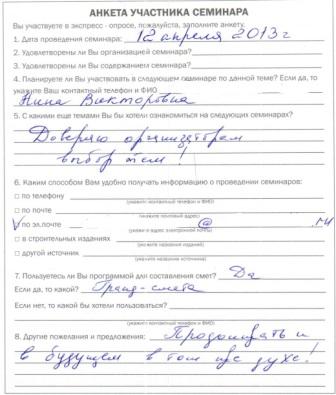 АНКЕТА УЧАСТНИКА СЕМИНАРА
Вы участвуете в экспресс - опросе, пожалуйста, заполните анкету.
1. Дата проведения семинара: 12 апреля 2013 г
2. Удовлетворены ли Вы организацией семинара?
3. Удовлетворены ли Вы содержанием семинара?
4. Планируете ли Вы участвовать в следующем семинаре по данной теме? Если да, то
укажите Ваш контактный телефон и ФИО
Нина Викторовна
5. С какими еще темами Вы бы хотели ознакомиться на следующих семинарах?
Доверяю организаторам
выбор тем!
6. Каким способом Вам удобно получать информацию о проведении семинаров:
□ по телефону
(укажите контактный телефон и ФИО)
□ по почте
(укажите почтовый адрес)
V по эл.почте @ .ru
(укажите адрес электронной почты)
□ в строительных изданиях
(укажите название изданий)
□ другой источник
(укажите название источника)
7. Пользуетесь ли Вы программой для составления смет? Да
Если да, то какой? Гранд-смета
Если нет, то какой бы хотели пользоваться?
(укажите контактный телефон и ФИО)
8. Другие пожелания и предложения: Продолжать и
в будущем в том же духе!